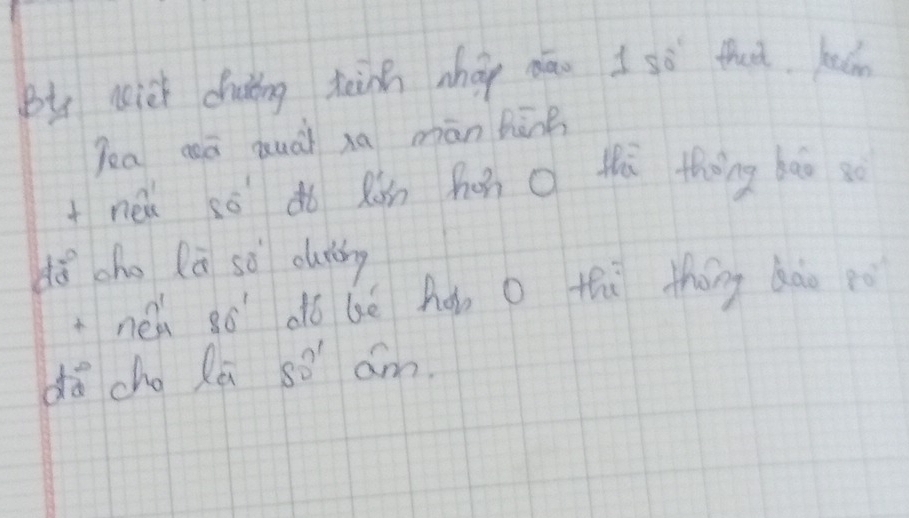 Bt1 viết chương trình nhập vào 1 số thực. kiểm
tra và xuất ra màn hình
+ nếu số đó lớn hơn 0 thì thông báo số
đã cho là số dương
+ nếu số đó bé hơn 0 thì thông báo số
đã cho là số âm.